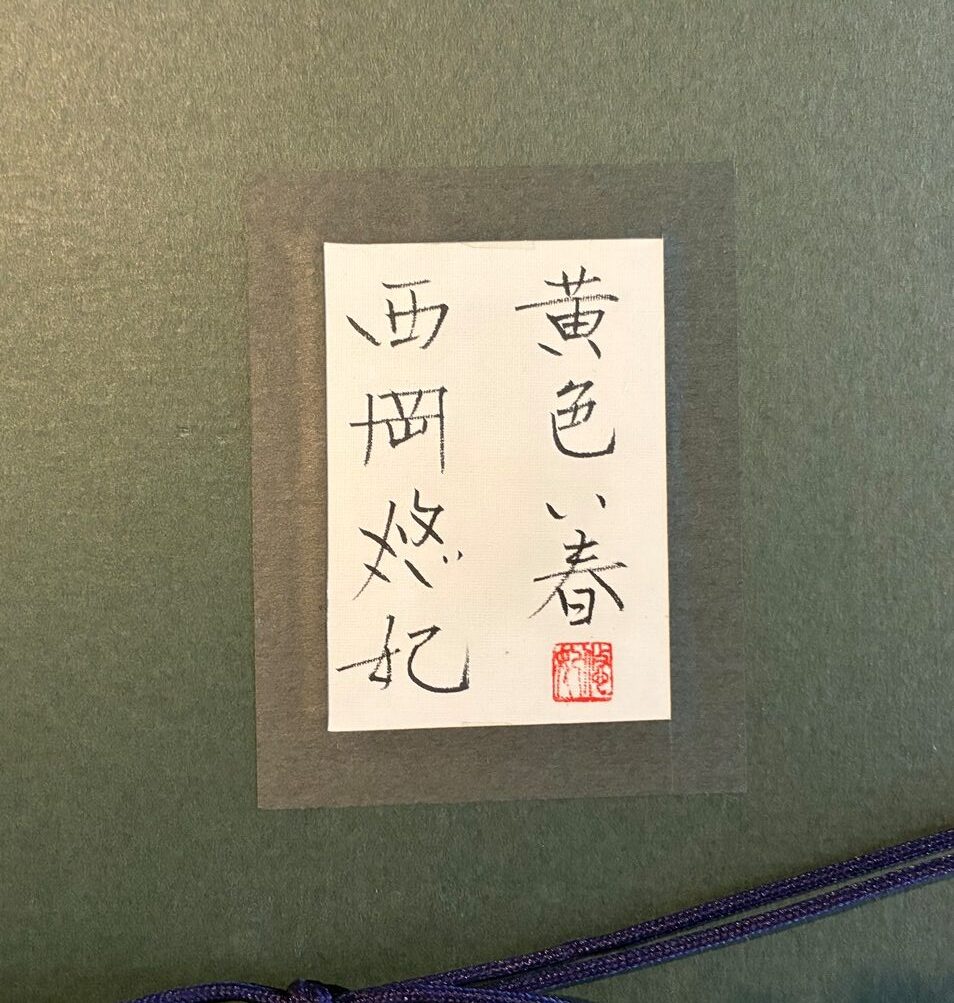 黄色い春
西岡悠妃